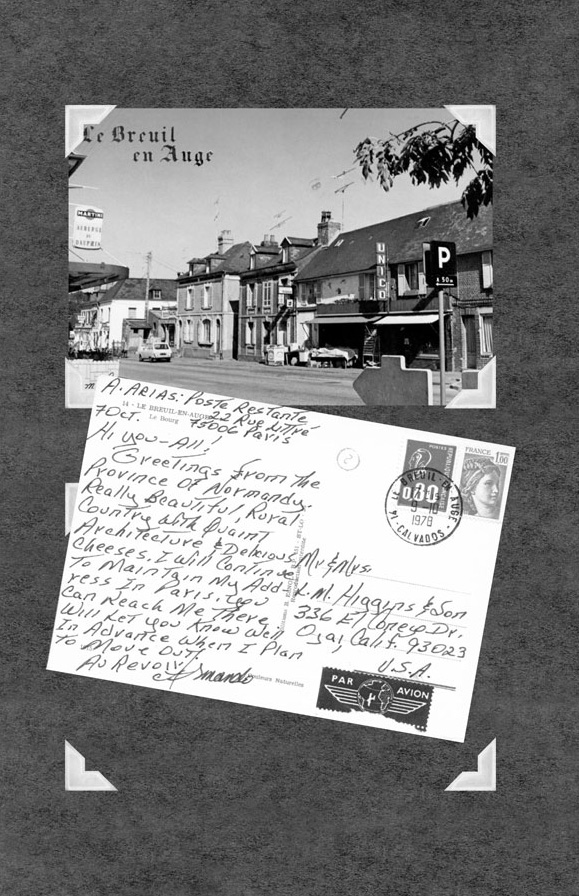 Le Breuil
en Auge
MARTINI
AUBERGE
DU
DAUPHIN
UNICO
P
A 50m
A. ARIAS: Poste Restante
22 Rue Littré
75006 Paris
14 - LE BREUIL-EN-AUGE
Le Bourg
7 Oct.
Hi you-All!
Greetings from the
Province Of Normandy.
Really Beautiful, Rural
Country With Quaint
Architecture & Delicious
Cheeses. I Will Continue
To Maintain My Add-
ress In Paris. You
Can Reach Me There.
Will Let You Know Well
In Advance When I Plan
To Move Out!
Au Revoir
Armando
Couleurs Naturelles
POSTES
0,80
FRANCE
1,00
LE BREUIL-EN-AUGE
9-10
1978
14-CALVADOS-
Mr & Mrs.
L.M. Higgins & Son
336 El Conejo Dr.
Ojai, Calif. 93023
U.S.A.
PAR AVION